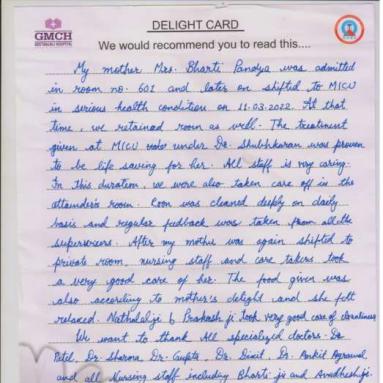 GMCH
GEETANJALI HOSPITAL
DELIGHT CARD
We would recommend you to read this....
My mother Mrs. Bharti Pandya was admitted
in room no. 601 and later on shifted to MICU
in serious health condition on 11.03.2022. At that
time, we retained room as well. The treatment
given at MICU under Dr. Shubhkaran was proven
to be life saving for her. All staff is very caring.
In this duration, we were also taken care off in the
attender's room. Coon was cleaned deeply on daily
basis and regular fedback was taken from all the
supervisors. After my mother was again shifted to
private room, nursing staff and care takers took
a very good care of her. The food given was
also according to mother's delight and she felt
relaxed. Nathalal ji & Prakash ji took very good care of cleanliness
We want to thank All specialyed doctors - Dr
Patel, Dr. Sharma, Dr. Gupta, Dr. Dixit, Dr. Ankit Agrawal
and all Nursing staff including Bharti ji and Avadhesh ji.